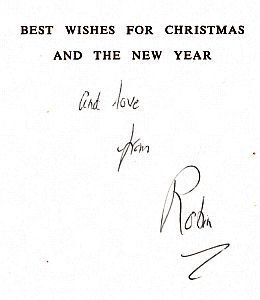 BEST WISHES FOR CHRISTMAS
AND THE NEW YEAR
and love
from
Robin